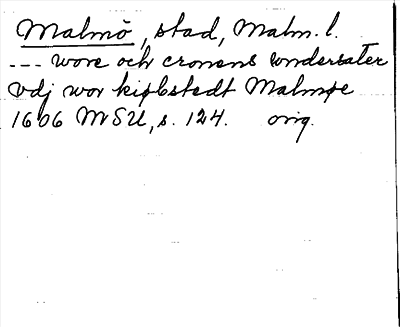 Malmö, stad, Malm. l.
--- wore och cronens wndersater
vdj wor kiøbstedt Malmøe
1606 MSU, s. 124. orig.